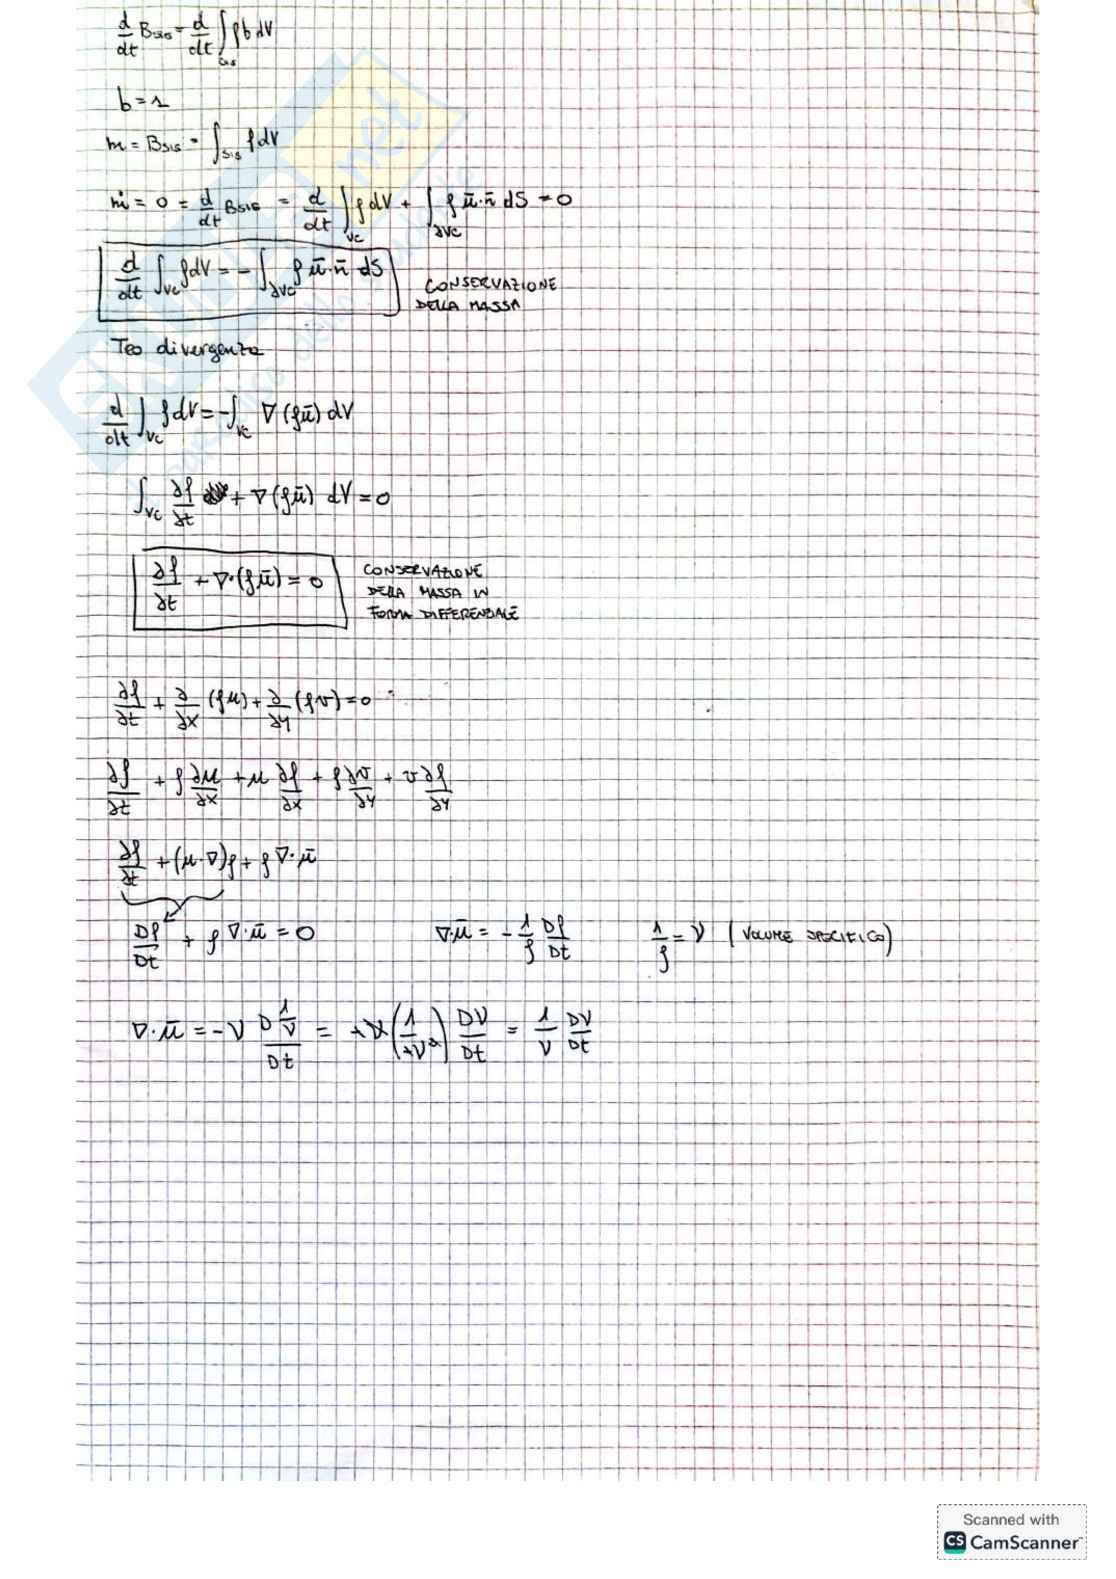 d/dt B_SIS = d/dt ∫_SIS ρb dV
b = 1
m = B_SIS = ∫_SIS ρ dV
ṁ = 0 = d/dt B_SIS = d/dt ∫_VC ρ dV + ∫_∂VC ρ ū·n̄ dS = 0
d/dt ∫_VC ρ dV = - ∫_∂VC ρ ū·n̄ dS CONSERVAZIONE
DELLA MASSA
Teo divergenza
d/dt ∫_VC ρ dV = - ∫_VC ∇(ρū) dV
∫_VC ∂ρ/∂t + ∇(ρū) dV = 0
∂ρ/∂t + ∇·(ρū) = 0 CONSERVAZIONE
DELLA MASSA IN
FORMA DIFFERENZIALE
∂ρ/∂t + ∂/∂x (ρu) + ∂/∂y (ρv) = 0
∂ρ/∂t + ρ ∂u/∂x + u ∂ρ/∂x + ρ ∂v/∂y + v ∂ρ/∂y
∂ρ/∂t + (u·∇)ρ + ρ ∇·ū
Dρ/Dt + ρ ∇·ū = 0 ∇·ū = - 1/ρ Dρ/Dt 1/ρ = ν (VOLUME SPECIFICO)
∇·ū = - ν D(1/ν)/Dt = +ν (1/+ν²) Dν/Dt = 1/ν Dν/Dt
Scanned with
CS CamScanner